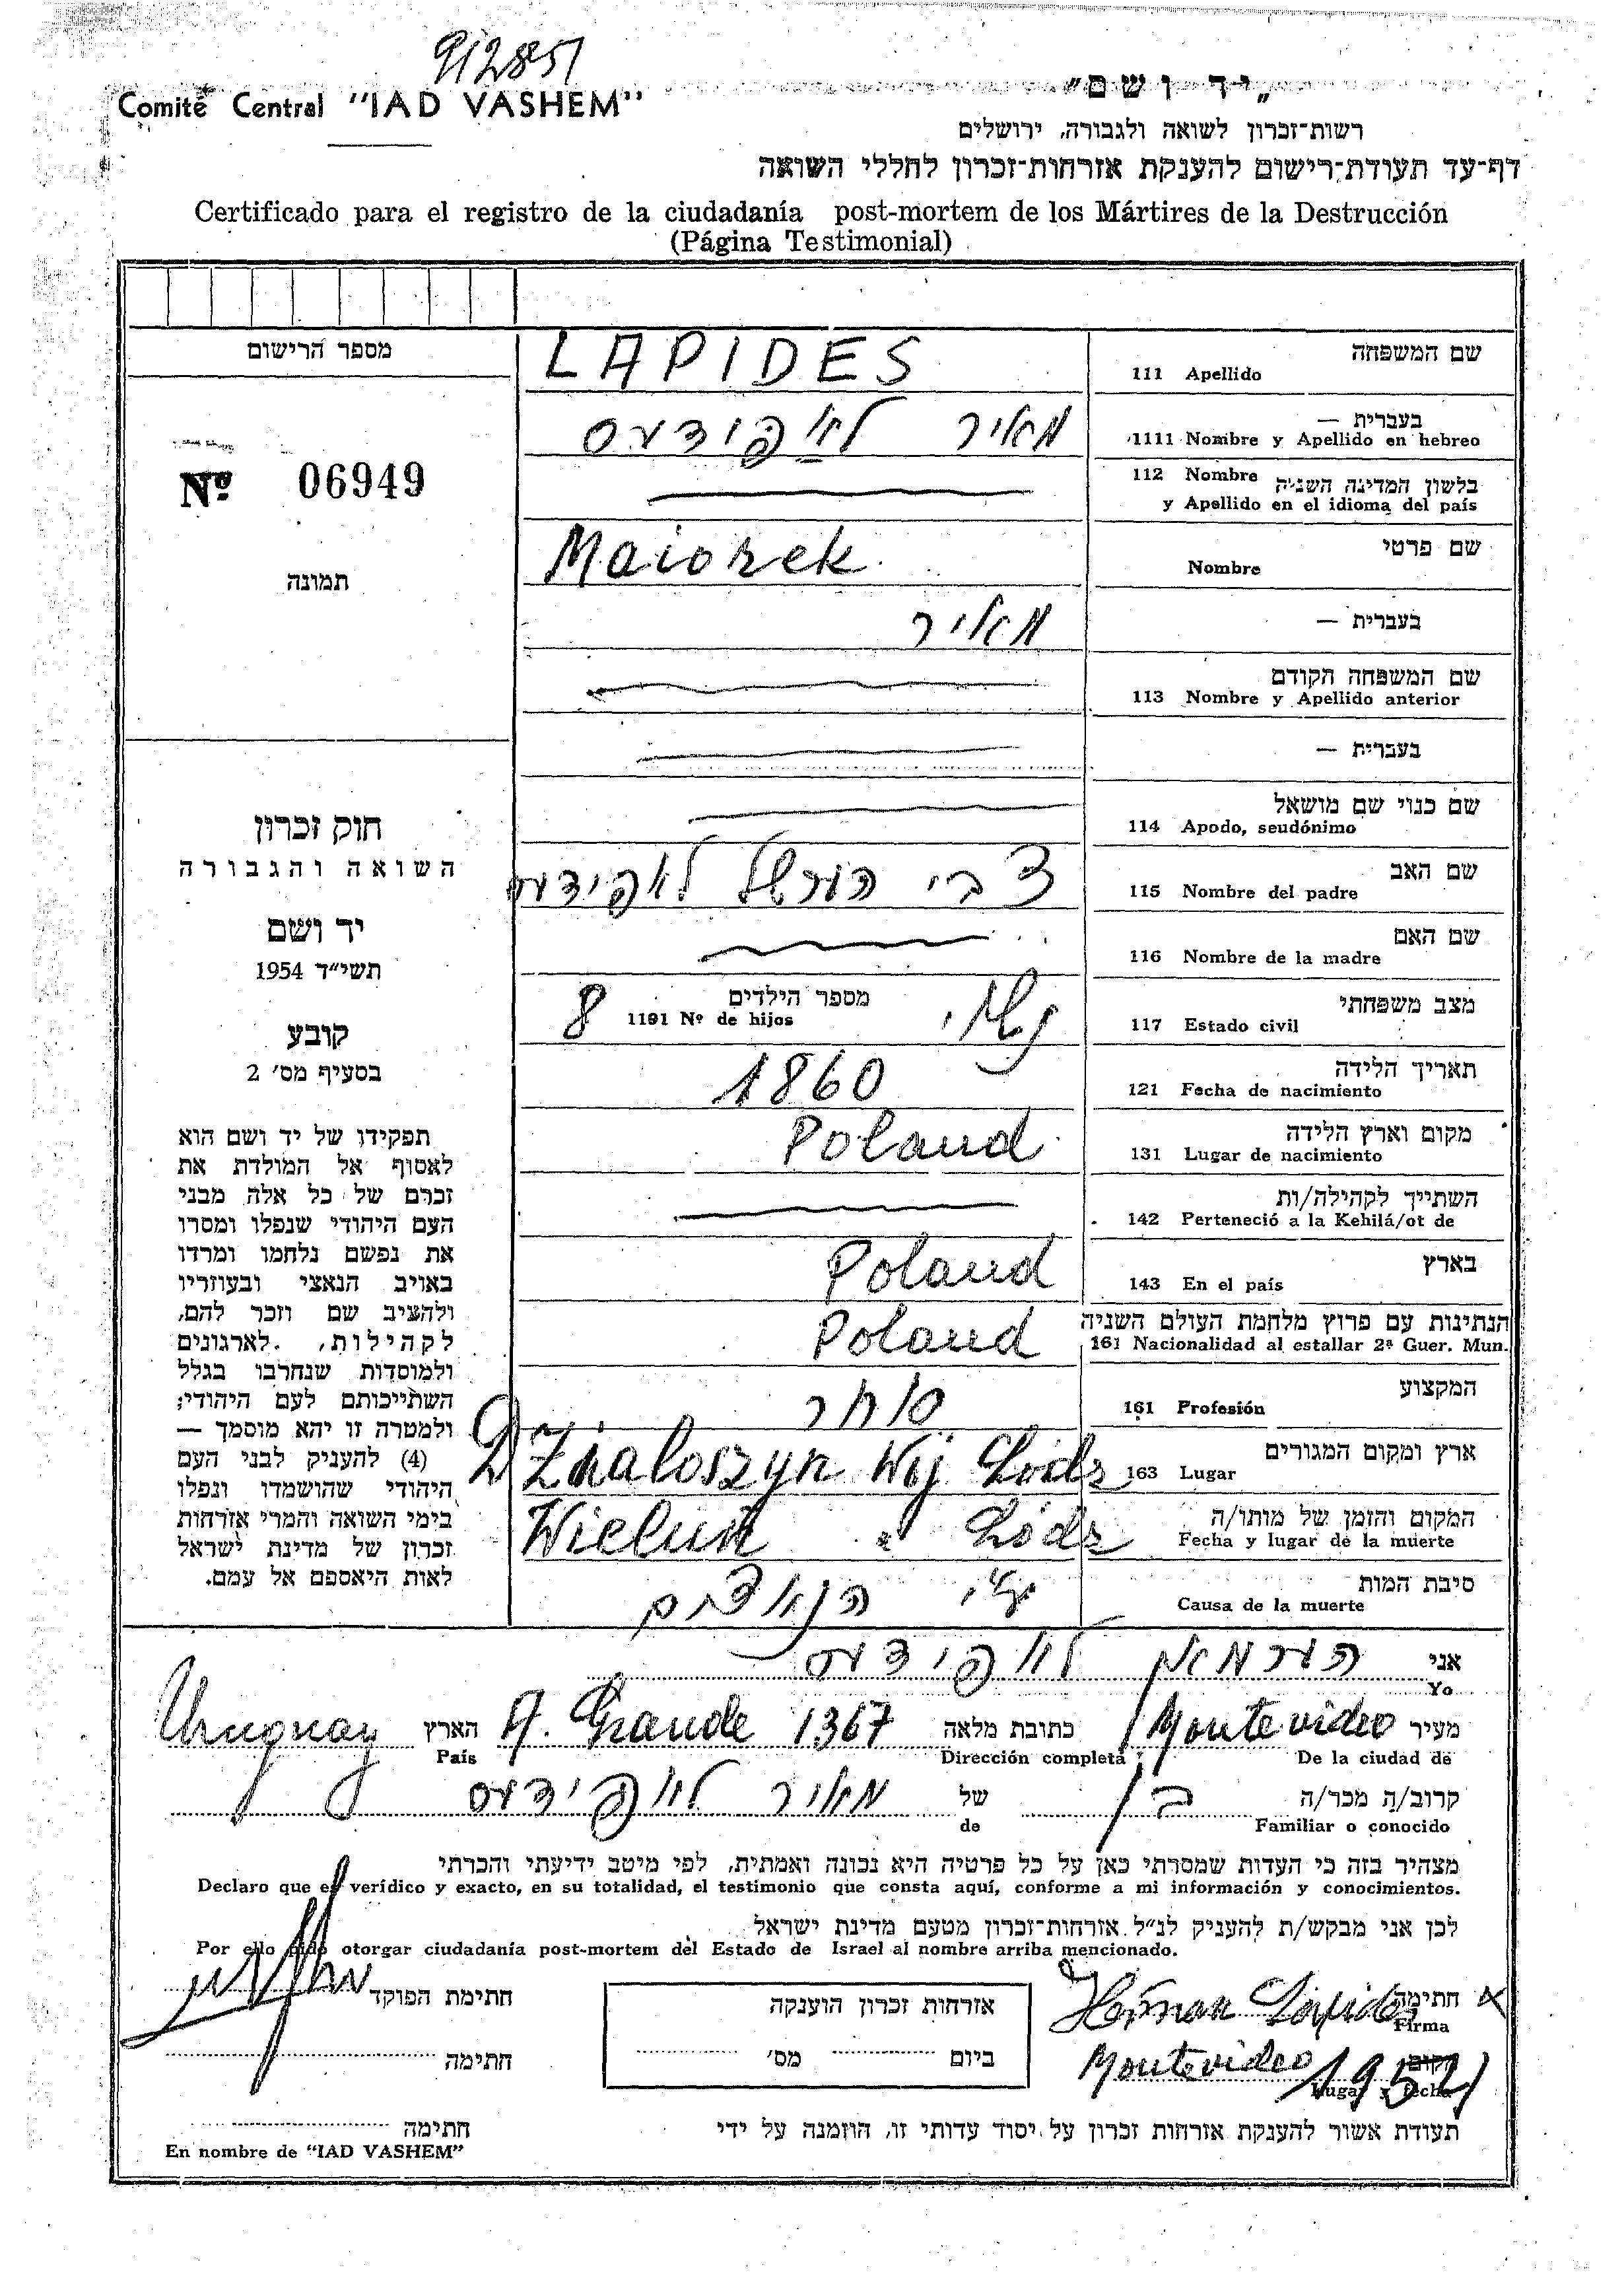 9/2851
Comité Central "IAD VASHEM"
„יד ושם"
רשות־זכרון לשואה ולגבורה, ירושלים
דף־עד תעודת־רישום להענקת אזרחות־זכרון לחללי השואה
Certificado para el registro de la ciudadanía post-mortem de los Mártires de la Destrucción
(Página Testimonial)
מספר הרישום
Nº 06949
תמונה
חוק זכרון
השואה והגבורה
יד ושם
תשי"ד 1954
קובע
בסעיף מס' 2
תפקידו של יד ושם הוא
לאסוף אל המולדת את
זכרם של כל אלה מבני
העם היהודי שנפלו ומסרו
את נפשם נלחמו ומרדו
באויב הנאצי ובעוזריו
ולהציב שם וזכר להם,
לקהילות, לארגונים
ולמוסדות שנחרבו בגלל
השתייכותם לעם היהודי;
ולמטרה זו יהא מוסמך —
(4) להעניק לבני העם
היהודי שהושמדו ונפלו
בימי השואה והמרי אזרחות
זכרון של מדינת ישראל
לאות היאספם אל עמם.
שם המשפחה
111 Apellido LAPIDES
בעברית —
1111 Nombre y Apellido en hebreo מאיר לאפידעס
112 Nombre בלשון המדינה השניה
y Apellido en el idioma del país
שם פרטי
Nombre Maiorek
בעברית — מאיר
שם המשפחה הקודם
113 Nombre y Apellido anterior
בעברית —
שם כנוי שם מושאל
114 Apodo, seudónimo
שם האב
115 Nombre del padre צבי הערשל לאפידעס
שם האם
116 Nombre de la madre
מצב משפחתי
117 Estado civil נשוי
מספר הילדים
1191 Nº de hijos 8
תאריך הלידה
121 Fecha de nacimiento 1860
מקום וארץ הלידה
131 Lugar de nacimiento Poland
השתייך לקהילה/ות
142 Perteneció a la Kehilá/ot de
בארץ
143 En el país Poland
הנתינות עם פרוץ מלחמת העולם השניה
161 Nacionalidad al estallar 2ª Guer. Mun. Poland
המקצוע
161 Profesión סוחר
ארץ ומקום המגורים
163 Lugar Dzialoszyn Woj Lodz
המקום והזמן של מותו/ה
Fecha y lugar de la muerte Wielun " Lodz
סיבת המות
Causa de la muerte ע"י הנאצים
אני הערמאן לאפידעס
Yo
מעיר Montevideo כתובת מלאה A. Grande 1367 הארץ Uruguay
De la ciudad de Dirección completa País
קרוב/ת מכר/ה בן של מאיר לאפידעס
Familiar o conocido de
מצהיר בזה כי העדות שמסרתי כאן על כל פרטיה היא נכונה ואמתית, לפי מיטב ידיעתי והכרתי
Declaro que es verídico y exacto, en su totalidad, el testimonio que consta aquí, conforme a mi información y conocimientos.
לכן אני מבקש/ת להעניק לנ"ל אזרחות־זכרון מטעם מדינת ישראל
Por ello pido otorgar ciudadanía post-mortem del Estado de Israel al nombre arriba mencionado.
חתימה Herman Lapides
Firma
אזרחות זכרון הוענקה
ביום מס'
חתימת הפוקד
חתימה
מקום Montevideo
Lugar y fecha
תעודת אשור להענקת אזרחות זכרון על יסוד עדותי זו, הוזמנה על ידי
חתימה
En nombre de "IAD VASHEM"